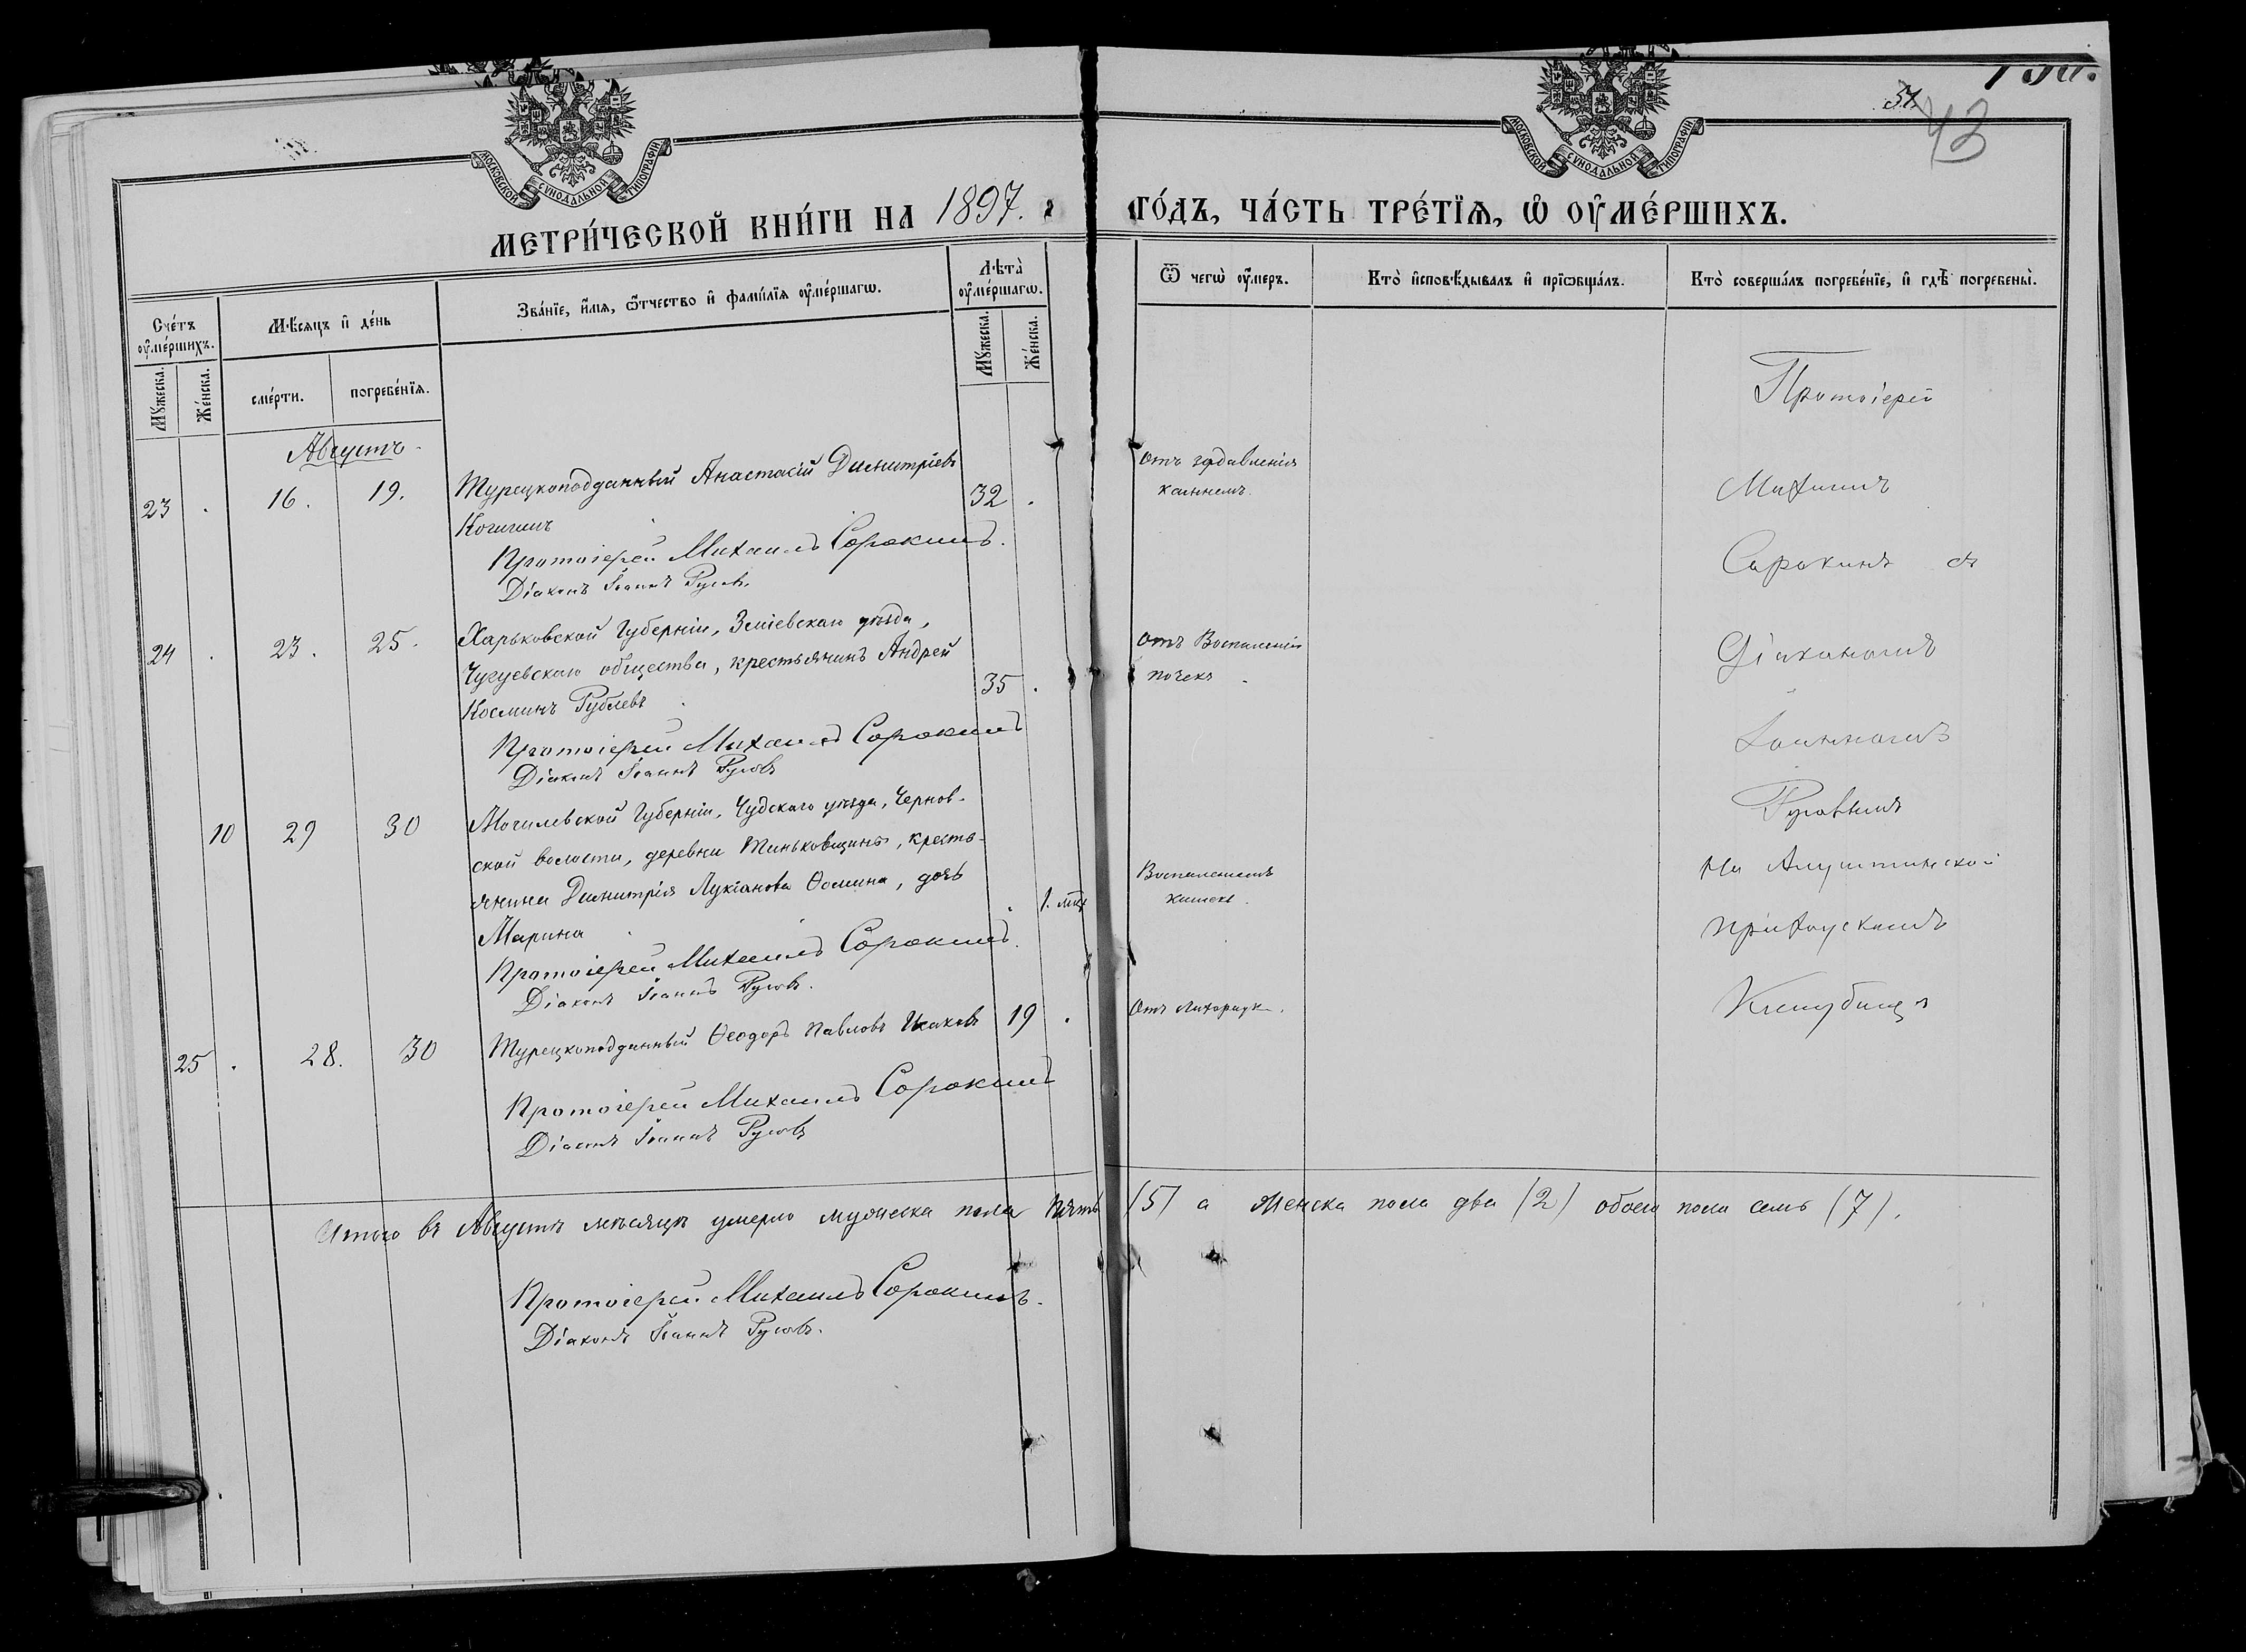 МОСКОВСКОЙ СѴНОДАЛЬНОЙ ТИПОГРАФІИ
МЕТРИ́ЧЕСКОЙ КНИ́ГИ НА 1897.
Сче́тъ ᲂу҆ме́ршихъ.
Мꙋ́жеска.
Же́нска.
Мѣ́сяцъ и҆ де́нь
сме́рти.
погребе́нїѧ.
Зва́нїе, и҆́мѧ, ѻ҆́тчество и҆ фами́лїѧ ᲂу҆ме́ршагѡ.
Лѣта̀ ᲂу҆ме́ршагѡ.
Мꙋ́жеска.
Же́нска.
Августъ
23 . 16. 19. Турецкоподданный Анастасій Димитріевъ
32 .
Протоіерей Михаилъ Сорокинъ.
Діаконъ Іоаннъ Русовъ.
24 . 23. 25. Харьковской Губерніи, Зміевскаго уѣзда,
Чугуевскаго общества, крестьянинъ Андрей
Косминъ Рублевъ 35 .
Протоіерей Михаилъ Сорокинъ
Діаконъ Іоаннъ Русовъ
10 29 30 Могилевской Губерніи, уѣзда, Чернов-
ской волости, деревни Миньковщины, кресть-
янина Димитрія Лукіанова Ѳомина, дочь
Марина . 1. мѣс
Протоіерей Михаилъ Сорокинъ.
Діаконъ Іоаннъ Русовъ.
25 . 28. 30 Турецкоподданный Ѳеодоръ Павловъ 19 .
Протоіерей Михаилъ Сорокинъ
Діаконъ Іоаннъ Русовъ
Итого въ Августѣ мѣсяцѣ умерло мужеска пола пять
Протоіерей Михаилъ Сорокинъ.
Діаконъ Іоаннъ Русовъ.
43
МОСКОВСКОЙ СѴНОДАЛЬНОЙ ТИПОГРАФІИ
ГО́ДЪ, ЧА́СТЬ ТРЕ́ТЇѦ, Ѡ҆ ОУ҆МЕ́РШИХЪ.
Ѿ чегѡ̀ ᲂу҆́меръ.
Кто̀ и҆сповѣ́дывалъ и҆ прїѡбща́лъ.
Кто̀ соверша́лъ погребе́нїе, и҆ гдѣ̀ погребены̀.
Отъ задавленія
камнемъ.
Отъ Воспаленія
почекъ .
Воспаленіемъ
кишекъ .
Отъ лихорадк.
Протоіерей
Михаилъ
Сорокинъ съ
Діакономъ
Іоанномъ
Русовымъ
На Алуштинскомъ
приходскомъ
Кладбищѣ
(5) а Женска пола два (2) обоего пола семь (7).